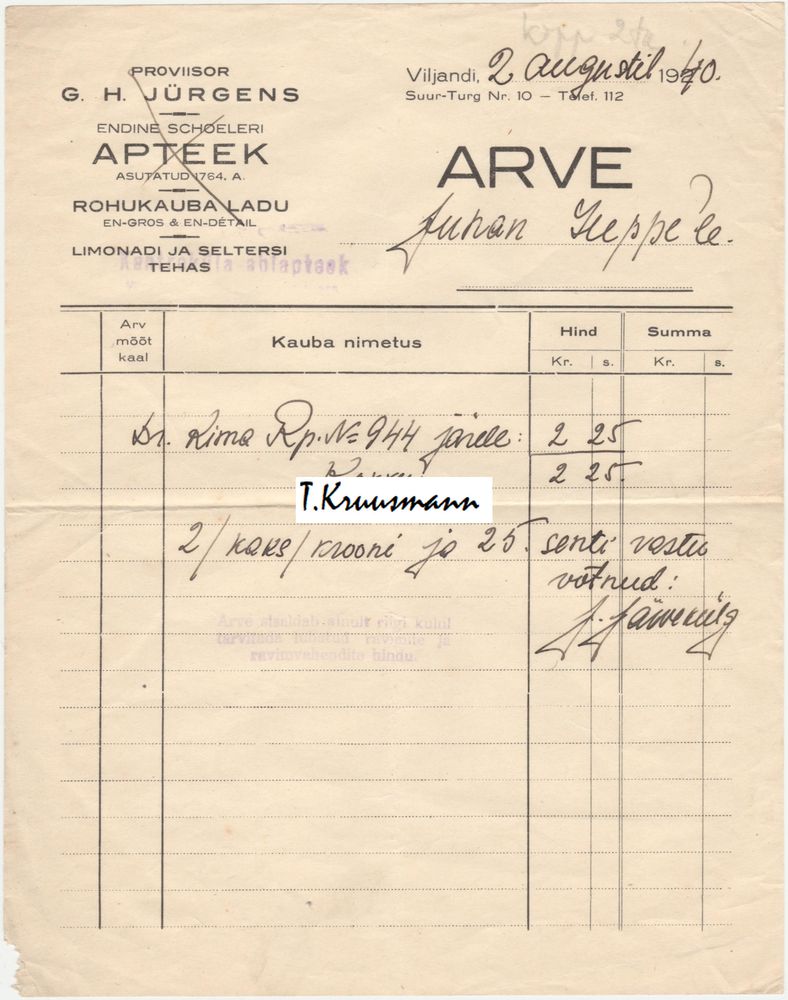 PROVIISOR
G. H. JÜRGENS
ENDINE SCHOELERI
APTEEK
ASUTATUD 1764. A.
ROHUKAUBA LADU
EN-GROS & EN-DÉTAIL
LIMONADI JA SELTERSI
TEHAS
Viljandi, 2 augustil 1940.
Suur-Turg Nr. 10 — Telef. 112
ARVE
Juhan
Arv
mõõt
kaal
Kauba nimetus
Hind
Summa
Kr. s. Kr. s.
Dr. Rima Rp. № 944 järele: 2 25
2 25.
T.Kruusmann
2/kaks/krooni ja 25. senti vastu
võtnud:
J. Järvekülg
Arve sisaldab ainult riigi kulul
tarvitada lubatud ravimite ja
ravimvahendite hindu.